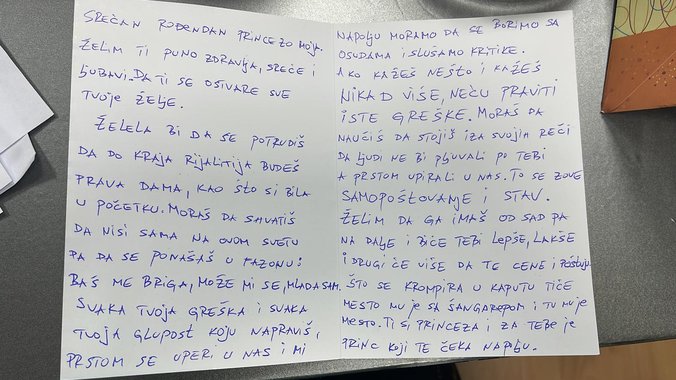 SREĆAN ROĐENDAN PRINCEZO MOJA.
ŽELIM TI PUNO ZDRAVLJA, SREĆE I
LJUBAVI. DA TI SE OSTVARE SVE
TVOJE ŽELJE.
ŽELELA BI DA SE POTRUDIŠ
DA DO KRAJA RIJALITIJA BUDEŠ
PRAVA DAMA, KAO ŠTO SI BILA
U POČETKU. MORAŠ DA SHVATIŠ
DA NISI SAMA NA OVOM SVETU
PA DA SE PONAŠAŠ U FAZONU:
BAŠ ME BRIGA, MOŽE MI SE, MLADA SAM.
SVAKA TVOJA GREŠKA I SVAKA
TVOJA GLUPOST KOJU NAPRAVIŠ,
PRSTOM SE UPERI U NAS I MI
NAPOLJU MORAMO DA SE BORIMO SA
OSUDAMA I SLUŠAMO KRITIKE.
AKO KAŽEŠ NEŠTO I KAŽEŠ
NIKAD VIŠE, NEĆU PRAVITI
ISTE GREŠKE. MORAŠ DA
NAUČIŠ DA STOJIŠ IZA SVOJIH REČI
DA LJUDI NE BI PLJUVALI PO TEBI
A PRSTOM UPIRALI U NAS. TO SE ZOVE
SAMOPOŠTOVANJE I STAV.
ŽELIM DA GA IMAŠ OD SAD PA
NA DALJE I BIĆE TEBI LEPŠE, LAKŠE
I DRUGI ĆE VIŠE DA TE CENE I POŠTUJU.
ŠTO SE KROMPIRA U KAPUTU TIČE
MESTO MU JE SA ŠANGAREPOM I TU MU JE
MESTO. TI SI PRINCEZA I ZA TEBE JE
PRINC KOJI TE ČEKA NAPOLJU.